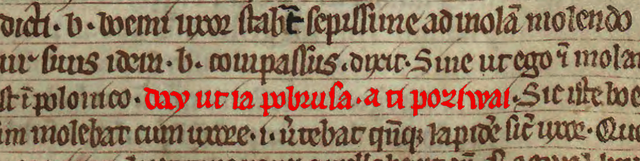 dicti · b · boemi uxor stabat sepissime ad molā molendo
ur suus idem · b · compassus · dixit · Sine ut ego ī molar
st ī polonico · day ut ia pobrusa · a ti poziwai · Sic iste boe
im molebat cum uxore · i · v̄tebat qn̄q; lapidē sic̄ uxor · Qu